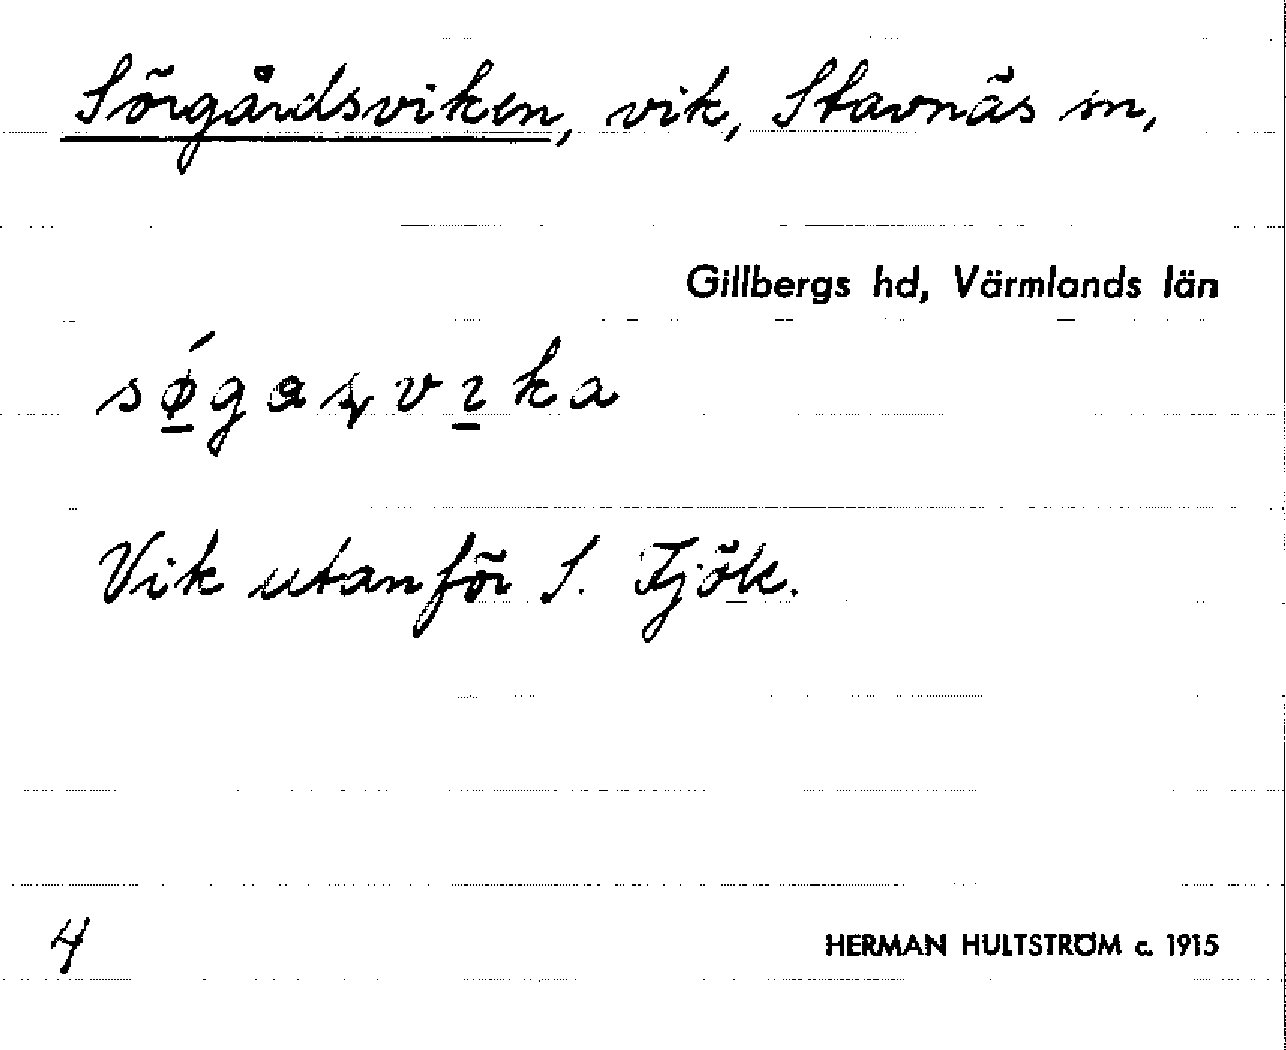 Sörgårdsviken, vik, Stavnäs sn,
Gillbergs hd, Värmlands län
sǿ̱gaʂvı̱ka
Vik utanför S. Fjök.
4
HERMAN HULTSTRÖM c. 1915